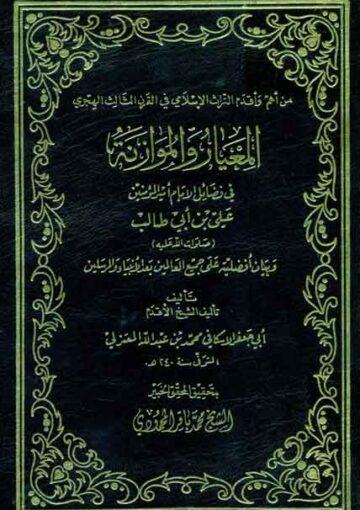 من أهم وأقدم التراث الإسلامي في القرن الثالث الهجري
المعيار والموازنة
في فضائل الإمام أمير المؤمنين
علي بن أبي طالب
(صلوات الله عليه)
وبيان أفضليته على جميع العالمين بعد الأنبياء والمرسلين
تأليف
تأليف الشيخ الأقدم
أبي جعفر الإسكافي محمد بن عبد الله المعتزلي
المتوفى سنة ٢٤٠ هـ
بتحقيق المحقق الخبير
الشيخ محمد باقر المحمودي